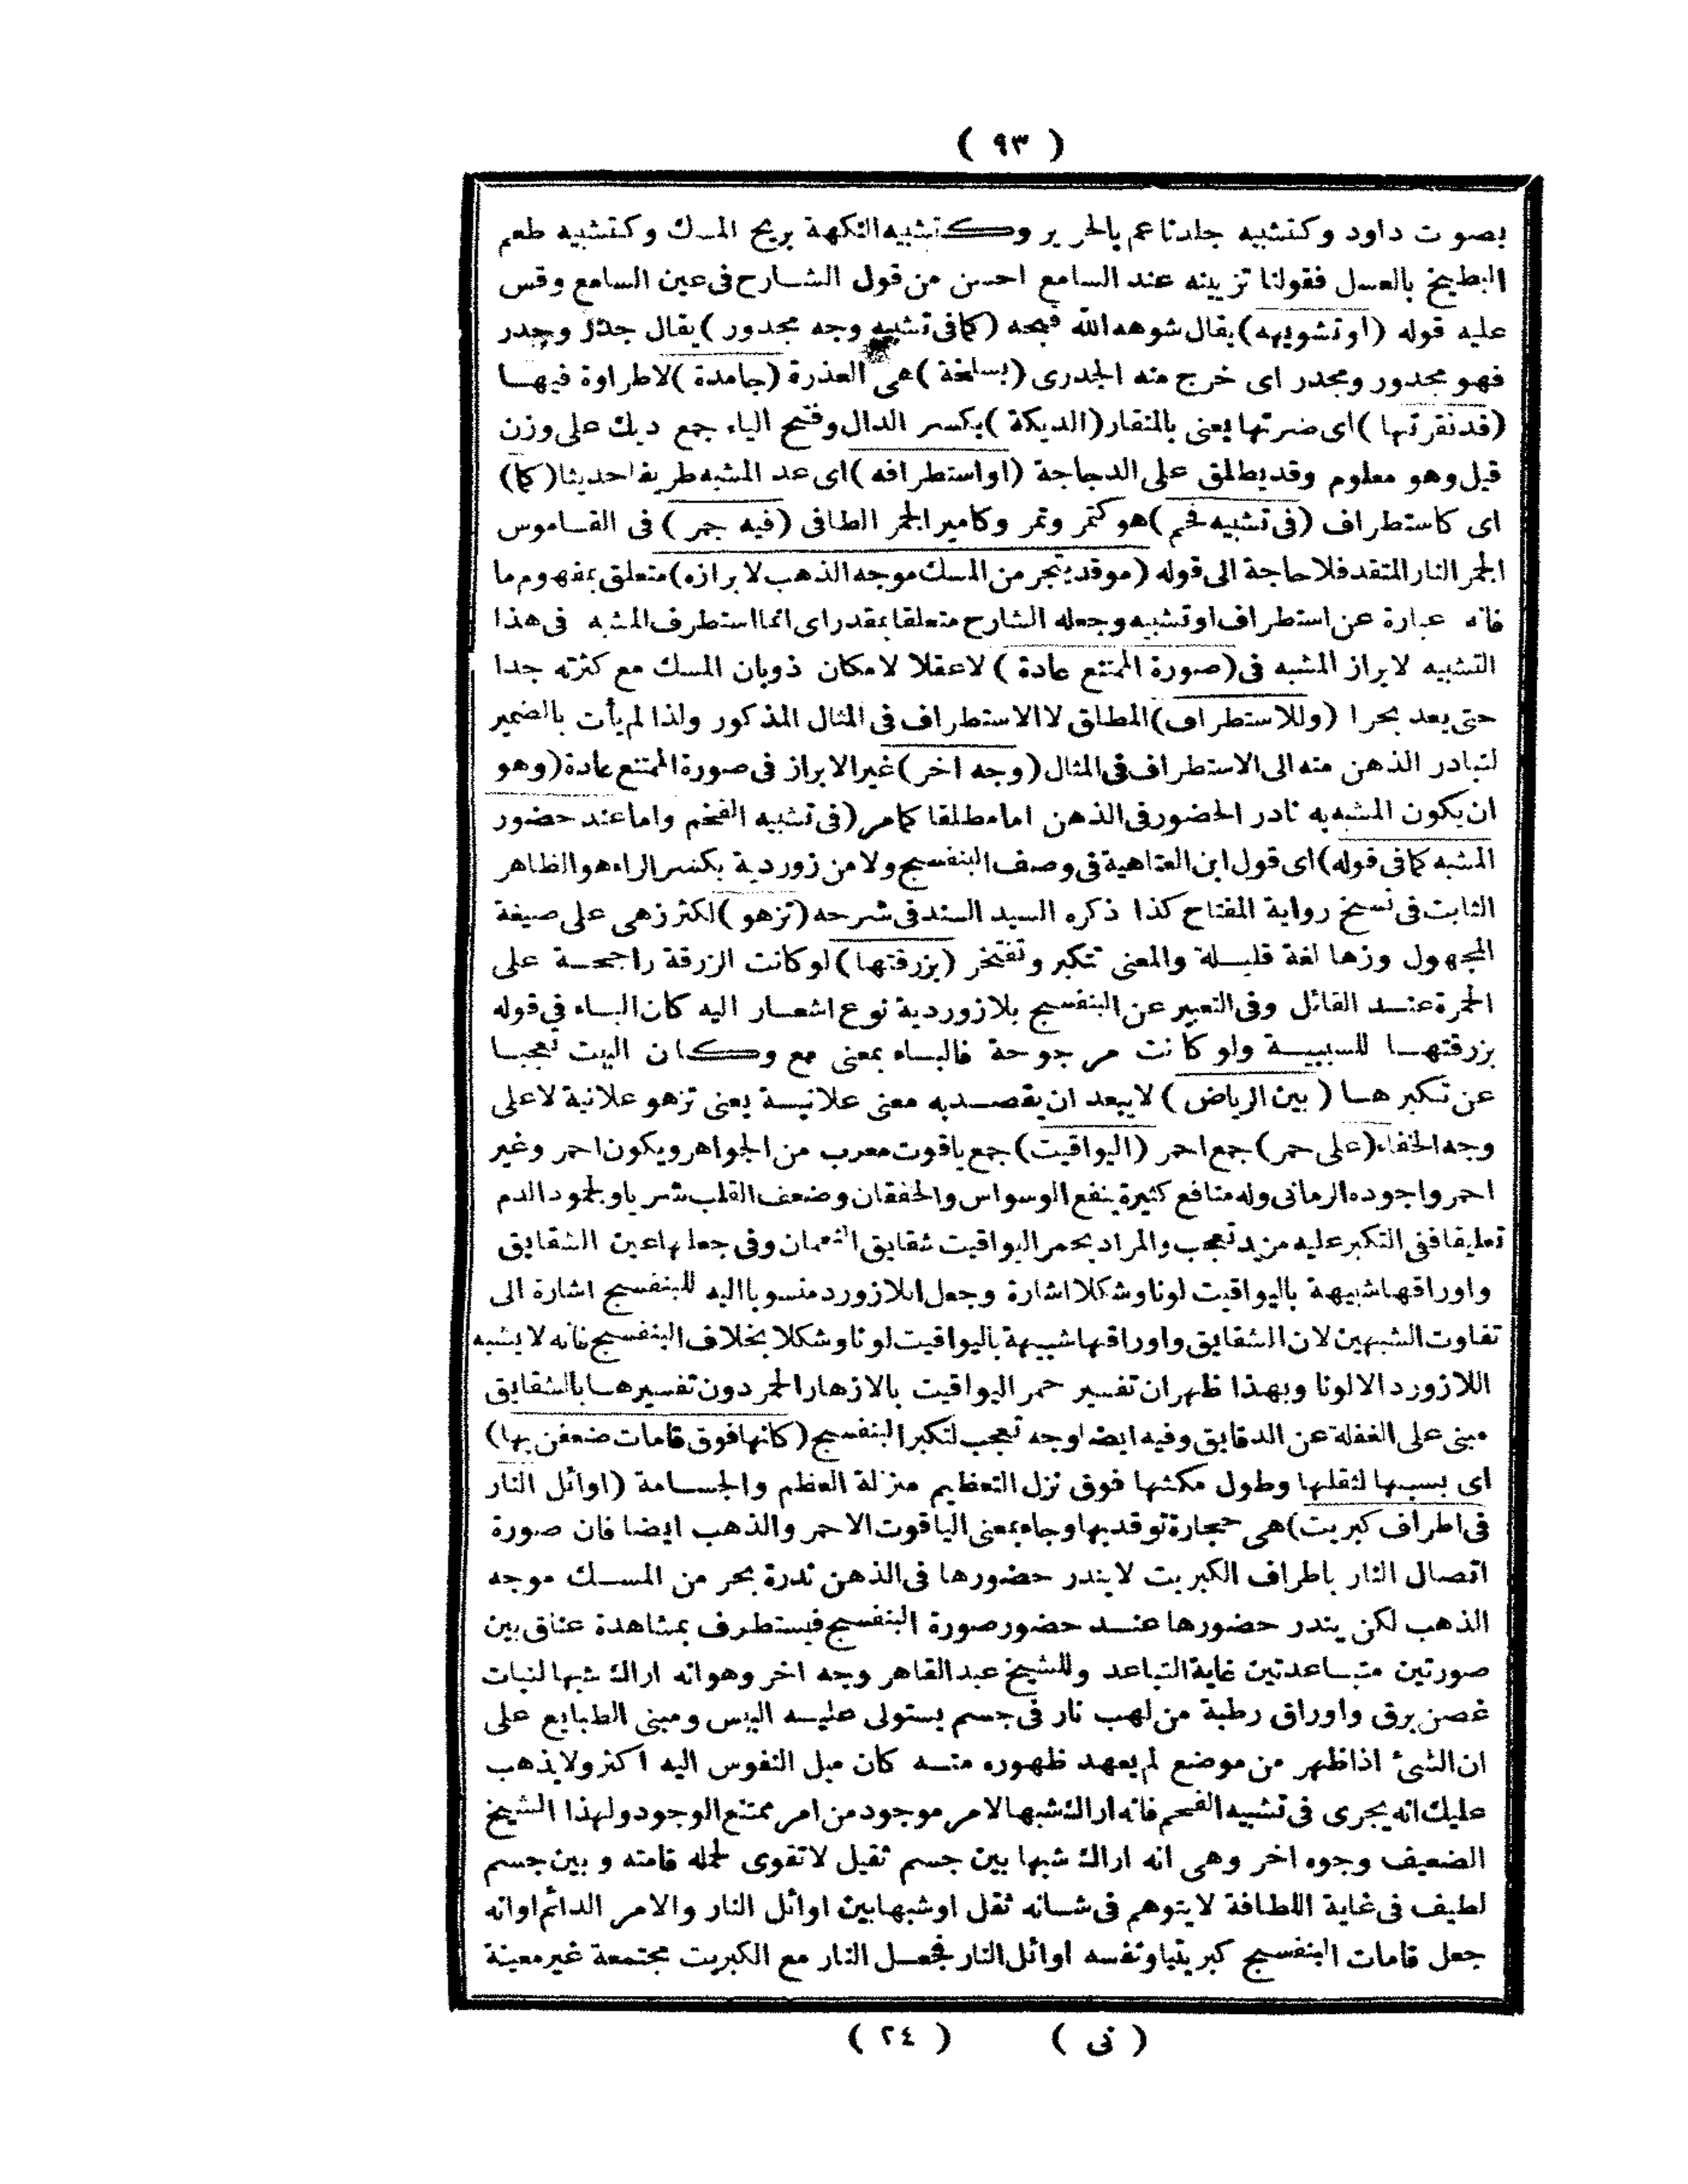 ( ٩٣ )
بصوت داود وكتشبيه جلد ناعم بالحرير وكتشبيه النكهة بريح المسك وكتشبيه طعم
البطيخ بالعسل فقولنا تزيينه عند السامع احسن من قول الشارح فى عين السامع وقس
عليه قوله (او تشويهه) يقال شوهه الله قبحه (كما فى تشبيه وجه مجدور) يقال جدر وجدر
فهو مجدور ومجدر اى خرج منه الجدرى (بسلحة) هى العذرة (جامدة) لاطراوة فيها
(قد نقرتها) اى ضربتها يعنى بالمنقار (الديكة) بكسر الدال وفتح الياء جمع ديك على وزن
قيل وهو معلوم وقد يطلق على الدجاجة (او استطرافه) اى عد المشبه طريفا حديثا (كما)
اى كاستطراف (فى تشبيه فحم) هو كتمر وتمر وكامير الجمر الطافى (فيه جمر) فى القاموس
الجمر النار المتقد فلا حاجة الى قوله (موقد ببحر من المسك موجه الذهب لابرازه) متعلق بمفهوم ما
فانه عبارة عن استطراف او تشبيه وجعله الشارح متعلقا بمقدر اى انما استطرف المشبه فى هذا
التشبيه لابراز المشبه فى (صورة الممتنع عادة) لاعقلا لامكان ذوبان المسك مع كثرته جدا
حتى يعد بحرا (وللاستطراف) المطلق لا الاستطراف فى المثال المذكور ولذا لم يأت بالضمير
لتبادر الذهن منه الى الاستطراف فى المثال (وجه اخر) غير الابراز فى صورة الممتنع عادة (وهو
ان يكون المشبه به نادر الحضور فى الذهن اما مطلقا كما مر (فى تشبيه الفحم واما عند حضور
المشبه كما فى قوله) اى قول ابن العتاهية فى وصف البنفسج ولا من زوردية بكسر الراء هو الظاهر
الثابت فى نسخ رواية المفتاح كذا ذكره السيد السند فى شرحه (تزهو) لكثر زهى على صيغة
المجهول وزها لغة قليلة والمعنى تتكبر وتفتخر (بزرقتها) لو كانت الزرقة راجحة على
الحمرة عند القائل وفى التعبير عن البنفسج بلازوردية نوع اشعار اليه كان الباء فى قوله
بزرقتها للسببية ولو كانت مرجوحة فالباء بمعنى مع وكان البيت تعجبا
عن تكبرها (بين الرياض) لا يبعد ان يقصد به معنى علانية يعنى تزهو علانية لا على
وجه الخفاء (على حمر) جمع احمر (اليواقيت) جمع ياقوت معرب من الجواهر ويكون احمر وغير
احمر واجوده الرمانى وله منافع كثيرة ينفع الوسواس والخفقان وضعف القلب شربا ولجمود الدم
تعليقا ففى التكبر عليه مزيد تعجب والمراد بحمر اليواقيت شقايق النعمان وفى جعلها عين الشقايق
واوراقها شبيهة باليواقيت لونا وشكلا اشارة وجعل اللازورد منسوبا اليه للبنفسج اشارة الى
تفاوت الشبهين لان الشقايق واوراقها شبيهة باليواقيت لونا وشكلا بخلاف البنفسج فانه لا يشبه
اللازورد الا لونا وبهذا ظهر ان تفسير حمر اليواقيت بالازهار الحمر دون تفسيرها بالشقايق
مبنى على الغفلة عن الدقايق وفيه ايضا وجه تعجب لتكبر البنفسج (كانها فوق قامات ضعفن بها)
اى بسببها لثقلها وطول مكثها فوق نزل التعظيم منزلة العظم والجسامة (اوائل النار
فى اطراف كبريت) هى حجارة توقد بها وجاء بمعنى الياقوت الاحمر والذهب ايضا فان صورة
اتصال النار باطراف الكبريت لا يندر حضورها فى الذهن ندرة بحر من المسك موجه
الذهب لكن يندر حضورها عند حضور صورة البنفسج فيستطرف بمشاهدة عناق بين
صورتين متباعدتين غاية التباعد وللشيخ عبد القاهر وجه اخر وهو انه اراك شبها لنبات
غصن يرق واوراق رطبة من لهب نار فى جسم يستولى عليه اليبس ومبنى الطبايع على
ان الشئ اذا ظهر من موضع لم يعهد ظهوره منه كان ميل النفوس اليه اكثر ولا يذهب
عليك انه يجرى فى تشبيه الفحم فانه اراك شبها لامر موجود من امر ممتنع الوجود ولهذا الشيخ
الضعيف وجوه اخر وهى انه اراك شبها بين جسم ثقيل لا تقوى لحمله قامته وبين جسم
لطيف فى غاية اللطافة لا يتوهم فى شانه ثقل او شبها بين اوائل النار والامر الدائم او انه
جعل قامات البنفسج كبريتيا ونفسه اوائل النار فجعل النار مع الكبريت مجتمعة غير معينة
( نى ) ( ٢٤ )